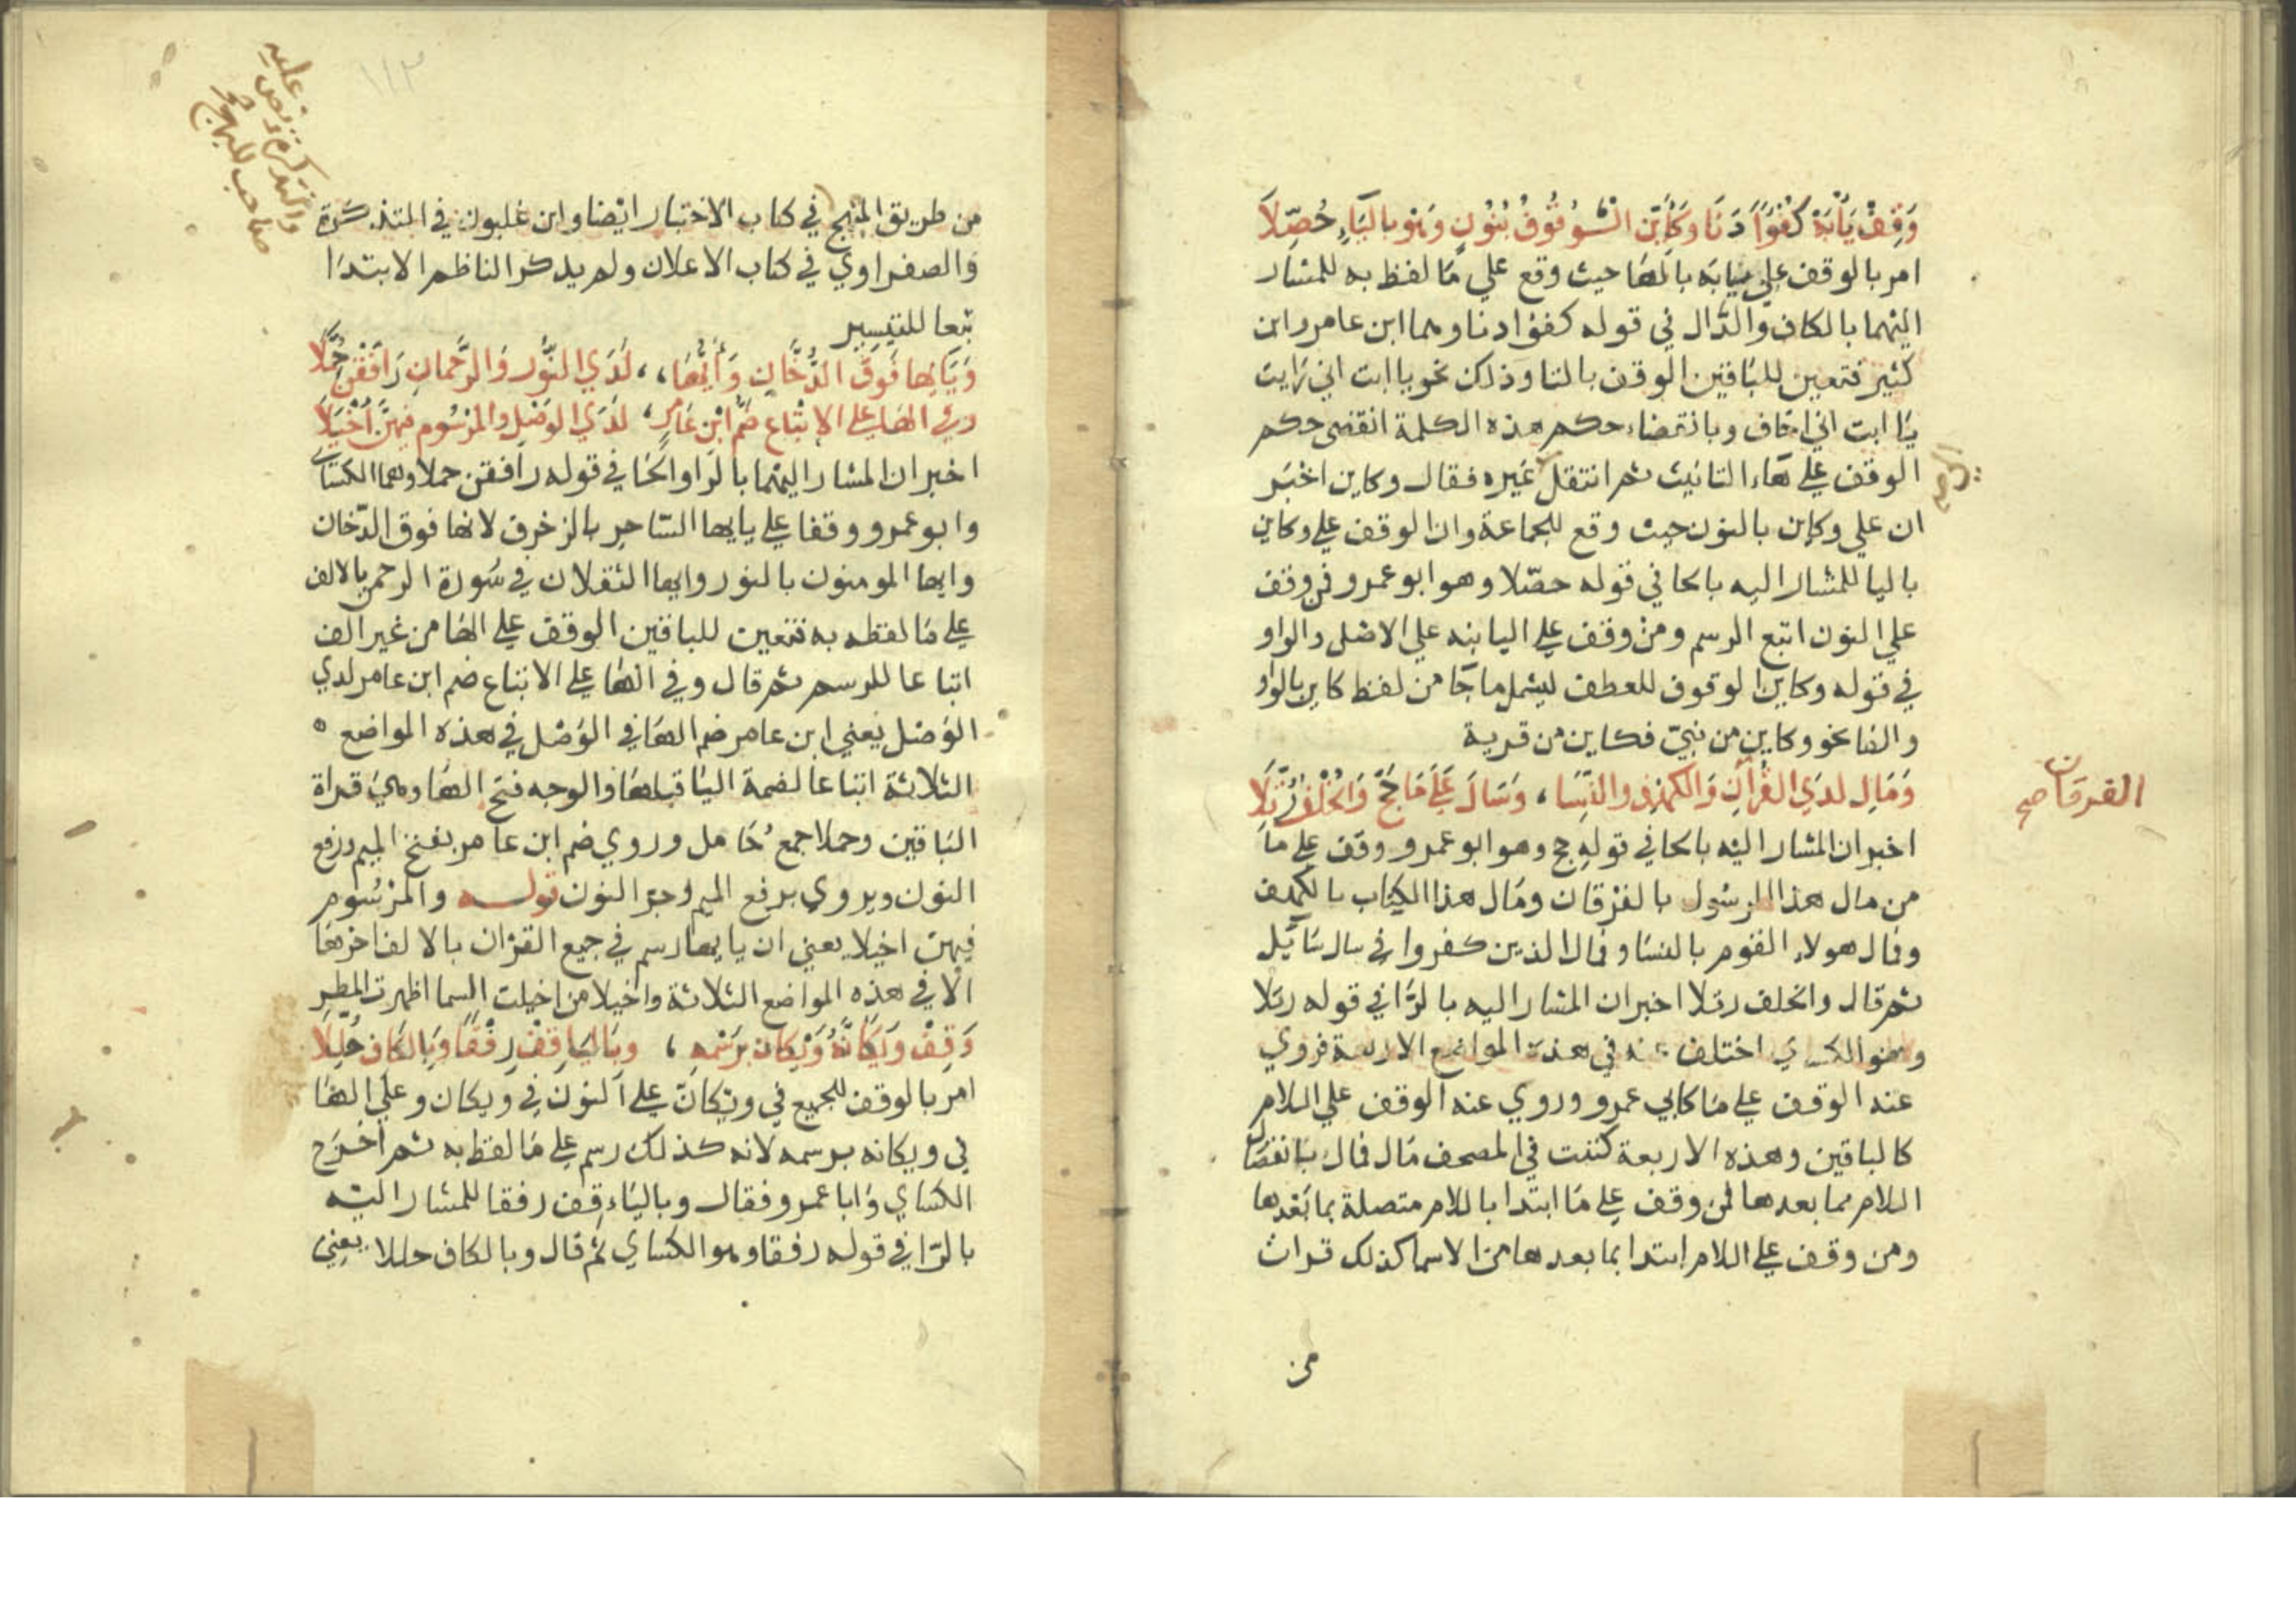 وَقِفْ يَا أَبَهْ كُفْوًا دَنَا وَكَأَيِّنِ الْـوُقُوفُ بِنُونٍ وَهْوَ بِالْيَاءِ حُصِّلَا
امر بالوقف علي يا ابه بالها حيث وقع علي ما لفظ به للمشار
اليهما بالكاف والدال في قوله كفؤا دنا وهما ابن عامر وابن
كثير فتعين للباقين الوقف بالتا وذلك نحو يا ابت اني رايت
يا ابت اني اخاف وبانقضاء حكم هذه الكلمة انقضي حكم
الوقف علي هاء التانيث ثم انتقل غيره فقال وكاين اخبر
ان علي وكاين بالنون حيث وقع للجماعة وان الوقف علي وكاين
باليا للمشار اليه بالحا في قوله حصلا وهو ابو عمرو فمن وقف
علي النون اتبع الرسم ومن وقف علي اليا نبه علي الاصل والواو
في قوله وكاين الوقوف للعطف ليشمل ما جا من لفظ كاين بالواو
والفا نحو وكاين من نبي فكاين من قرية
وَمَالِ لَدَي الْفُرْقَانِ وَالْكَهْفِ وَالنِّسَا ، وَسَالَ عَلَي مَا حَجَّ وَالْخُلْفُ رُتِّلَا
الفرقان صح
اخبر ان المشار اليه بالحا في قوله حج وهو ابو عمرو وقف علي ما
من مال هذا الرسول بالفرقان ومال هذا الكتاب بالكهف
وفمال هولاء القوم بالنسا وفمال الذين كفروا في سال سايل
ثم قال والخلف رتلا اخبر ان المشار اليه بالرا في قوله رتلا
وهو الكساي اختلف عنه في هذه المواضع الاربعة فروي
عنه الوقف علي ما كابي عمرو وروي عنه الوقف علي اللام
كالباقين وهذه الاربعة كتبت في المصحف مال فمال بانفصال
اللام مما بعدها فمن وقف علي ما ابتدا باللام متصلة بما بعدها
ومن وقف علي اللام ابتدا بما بعدها من الاسما كذلك قرات
من
١١٣
من طريق المنهج في كتاب الاختيار ايضا وابن غلبون في التذكرة
والصفراوي في كتاب الاعلان ولم يذكر الناظم الابتدا
تبعا للتيسير
وَيَا أَيُّهَا فَوْقَ الدُّخَانِ وَأَيُّهَا ، لَدَي النُّورِ وَالرَّحْمَانِ رَافَقْنَ حُمَّلَا
وفي الْهَا علي الاتباع ضَمَّ ابْنُ عَامِرٍ ، لَدَي الوَصْلِ والمَرْسُوم فيهنَّ أَخْيَلَا
اخبر ان المشار اليهما بالرا والحا في قوله رافقن حملا وهما الكساي
وابو عمرو وقفا علي يايها الساحر بالزخرف لانها فوق الدخان
وايها المومنون بالنور وايها الثقلان في سورة الرحمن بالالف
علي ما لفظه به فتعين للباقين الوقف علي الها من غير الف
اتباعا للرسم ثم قال وفي الها علي الاتباع ضم ابن عامر لدي
الوصل يعني ابن عامر ضم الها في الوصل في هذه المواضع
الثلاثة اتباعا لضمة اليا قبلها والوجه فتح الها وهي قراة
الباقين وحملا جمع حامل وروي ضم ابن عامر بفتح الميم ورفع
النون ويروي برفع الميم وجر النون قوله والمرسوم
فيهن اخيلا يعني ان يا يها رسم في جميع القران بالالف اخرها
الا في هذه المواضع الثلاثة واخيلا من اخيلت السما اظهرت المطر
وَقِفْ وَيْكَأَنَّهُ وَيْكَأَنَّ بِرَسْمِهِ ، وبِالْيَا قِفْ رِفْقًا وَبِالْكَافِ حُلِّلَا
امر بالوقف للجميع في ويكان علي النون في ويكان وعلي الها
في ويكانه برسمه لانه كذلك رسم علي ما لفظ به ثم اخرج
الكساي وابا عمرو فقال وبالياء قف رفقا للمشار اليه
بالرا في قوله رفقا وهو الكساي ثم قال وبالكاف حللا يعني